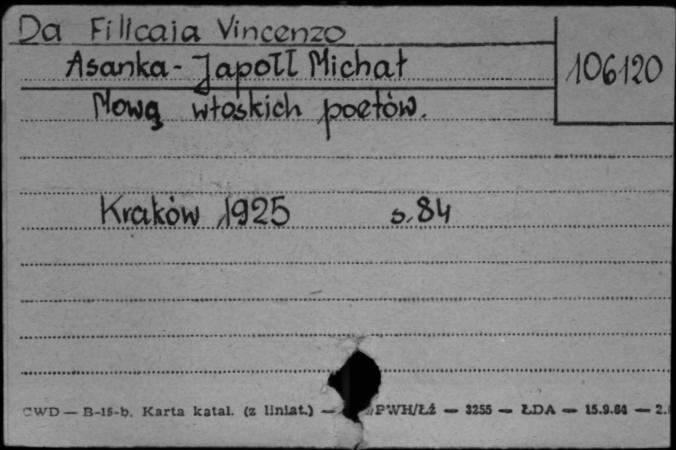 Da Filicaia Vincenzo
106120
Asanka-Japołł Michał
Mową włoskich poetów.
Kraków 1925 s.84
CWD — B-15-b. Karta katal. (z liniat.) — PWH/Łź — 3255 — ŁDA — 15.9.64 —